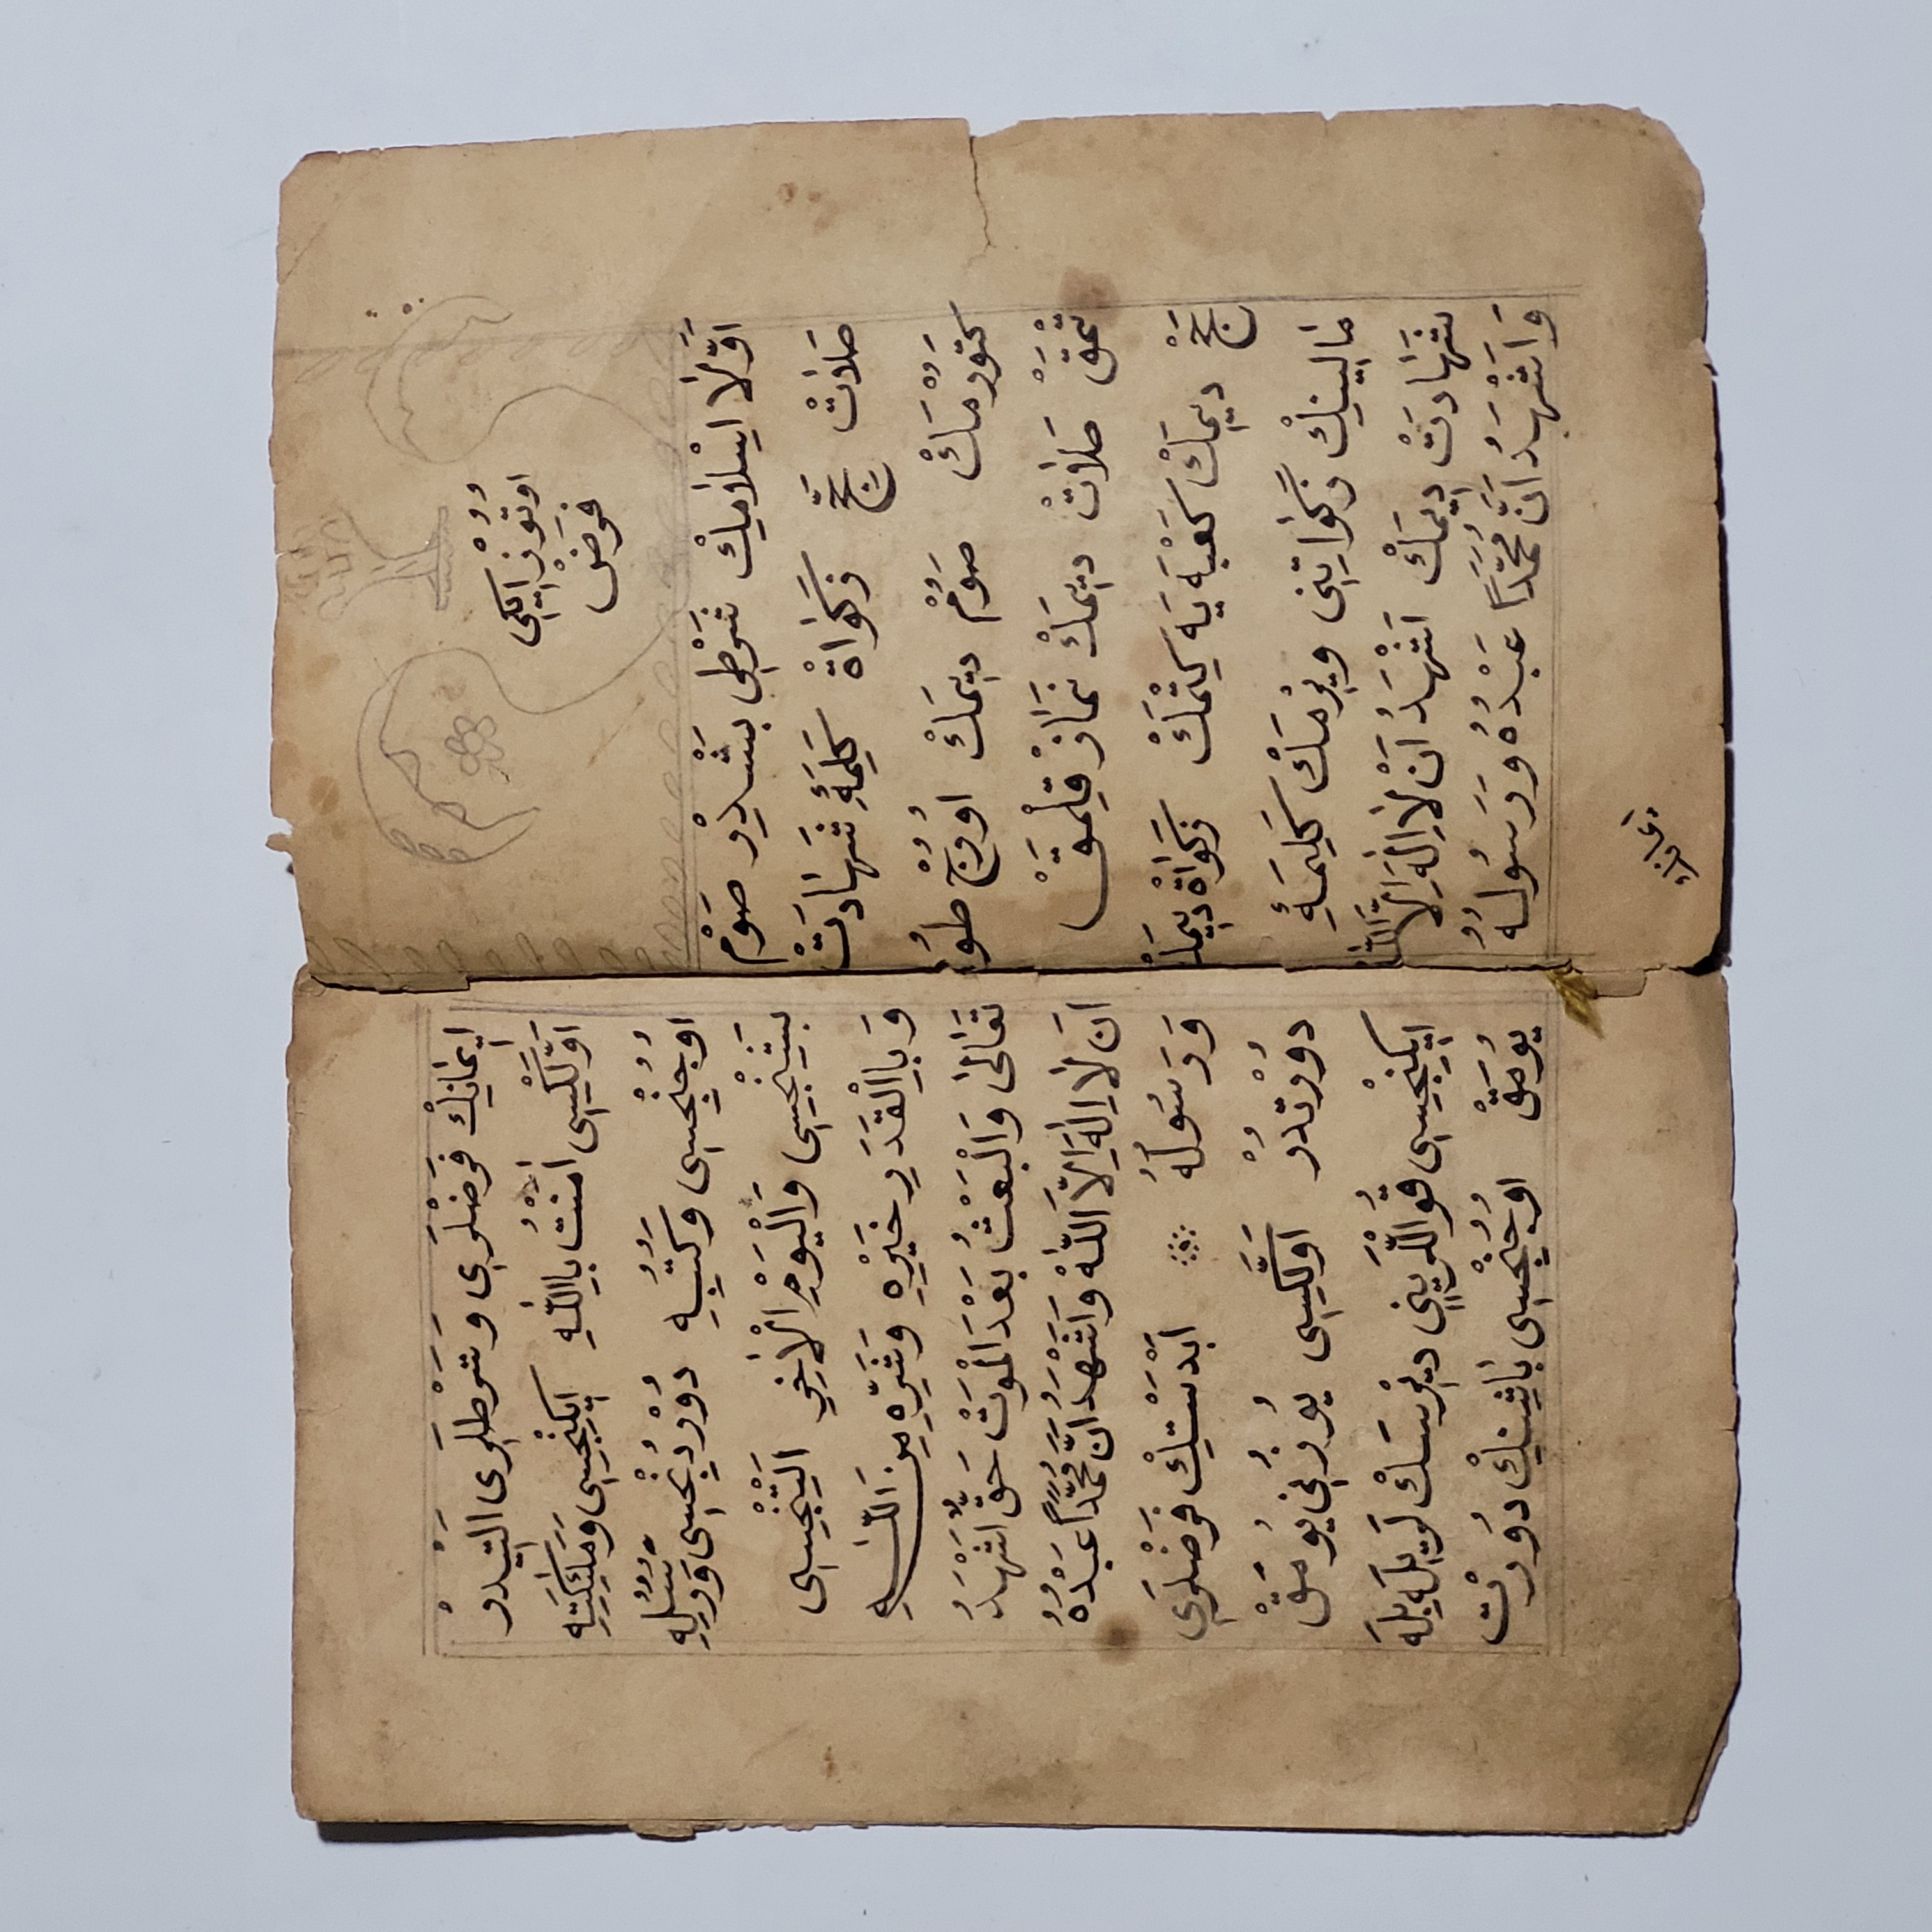 اوُتُوزْ اِیکِی
فَرِضْ
اَوَّلَا اِیسْلَامِیڭ شَرْطِی بَشْدِرْ صَوْمْ
صَلَاتْ حَجّْ زَکَوَاةْ کَلِمَۀِ شَهَادَتْ
کَتُورْمَكْ صَوُمْ دِیمَكْ اوُرُجْ طُو
تْمَقْ صَلَاتْ دِیمَكْ نَمَازْ قِلْمَقْ
حَجّْ دِیمَكْ کَعْبَه یَه کِتْمَكْ زَکَوَاةْ دِیمَكْ
مَالِینِڭ زَکَوَاتِنِی وِیرْمَكْ کَلِیمَۀِ
شَهَادَتْ دِیمَكْ اَشْهَدُ اَنْ لَا اِلٰهَ اِلَّا اللّٰهْ
وَاَشْهَدُ اَنَّ مُحَمَّدًا عَبْدُهُ وَرَسُولُهُ
اِیمَانِڭ فَرْضْلَرِی وَشَرْطْلَرِی اَلْتِیدِرْ
اَوَّلْکِیسِی اٰمَنْتُ بِاللّٰهِ اِیکِنْجِیسِی وَمَلٰئِکَتِهِ
اُوچُنْجِیسِی وَکُتُبِهِ دُورْدُنْجِیسِی وَرُسُلِهِ
بَشِنْجِیسِی وَالْیَوْمِ الْاٰخِرِ اَلْتِنْجِیسِی
وَبِالْقَدَرِ خَیْرِهِ وَشَرِّهِ مِنَ اللّٰهِ
تَعَالٰی وَالْبَعْثُ بَعْدَ الْمَوْتْ حَقٌّ اَشْهَدُ
اَنْ لَا اِلٰهَ اِلَّا اللّٰهْ وَاَشْهَدُ اَنَّ مُحَمَّدًا عَبْدُهُ
وَرَسُولُهُ اَبْدَسْتِڭ فَرْضْلَرِی
دُورْتْدُرْ اَوَّلْکِیسِی یُوزُنِی یُومَقْ
اِیکِنْجِیسِی قُوللَّرِینِی دِیرْسَكْلَرِیلَه بِلَه
یُومَقْ اوُچُنْجِیسِی بَاشِنِڭ دُورْتْ